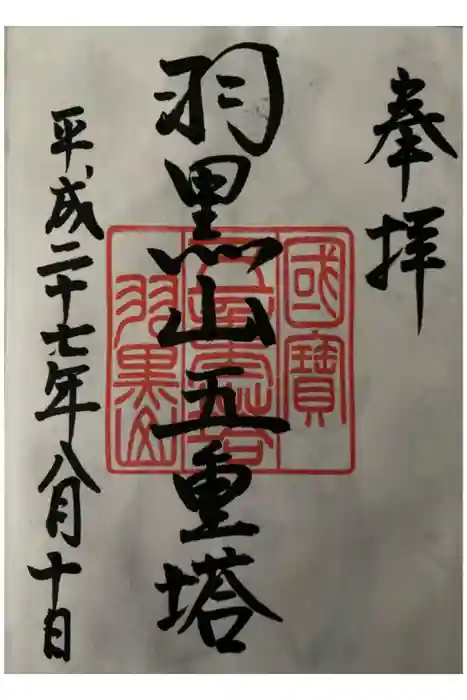 奉拝
國寶
五重塔
羽黒山
羽黒山五重塔
平成二十七年八月十日